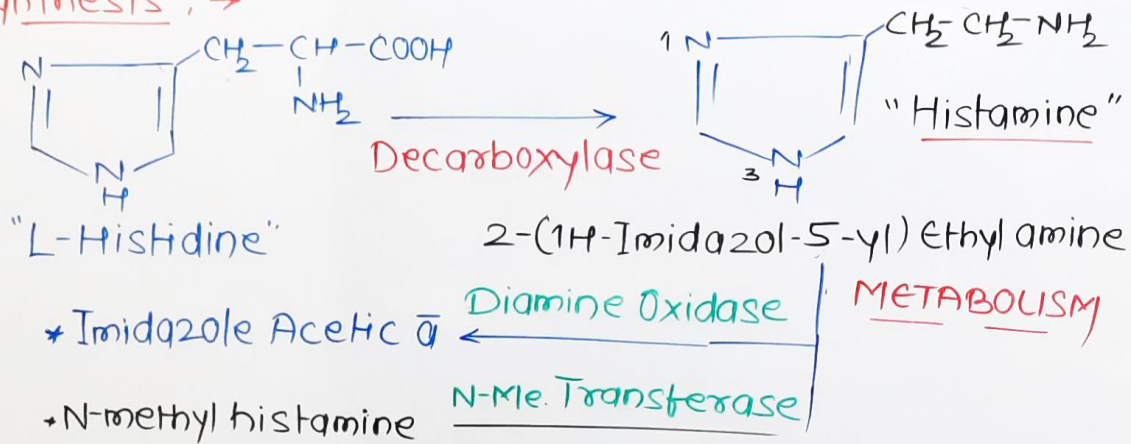 ynthesis : →
CH2—CH—COOH
NH2
N
N
H
"L-Histidine"
Decarboxylase
1 N
CH2-CH2-NH2
"Histamine"
3 N
H
2-(1H-Imidazol-5-yl) Ethyl amine
METABOLISM
Diamine Oxidase
* Imidazole Acetic ā
N-Me. Transferase
* N-methyl histamine